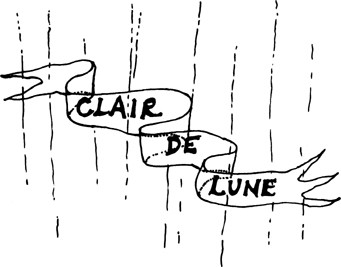 CLAIR
DE
LUNE